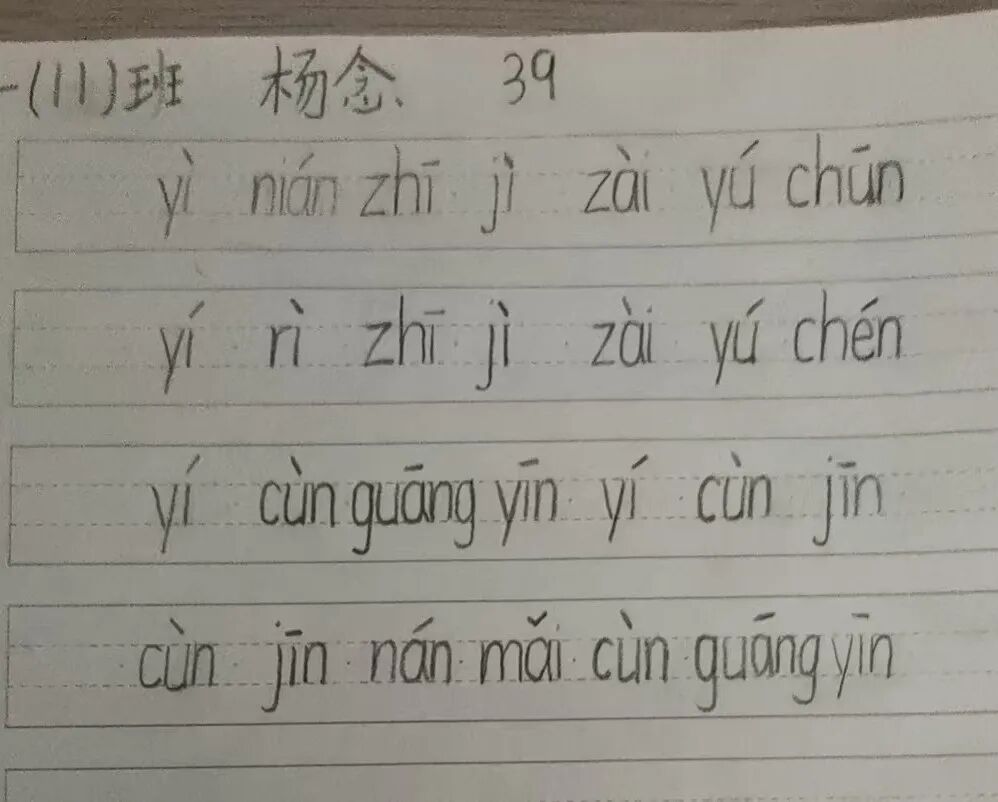 一(11)班 杨念 39
yì nián zhī jì zài yú chūn
yí rì zhī jì zài yú chén
yí cùn guāng yīn yí cùn jīn
cùn jīn nán mǎi cùn guāng yīn